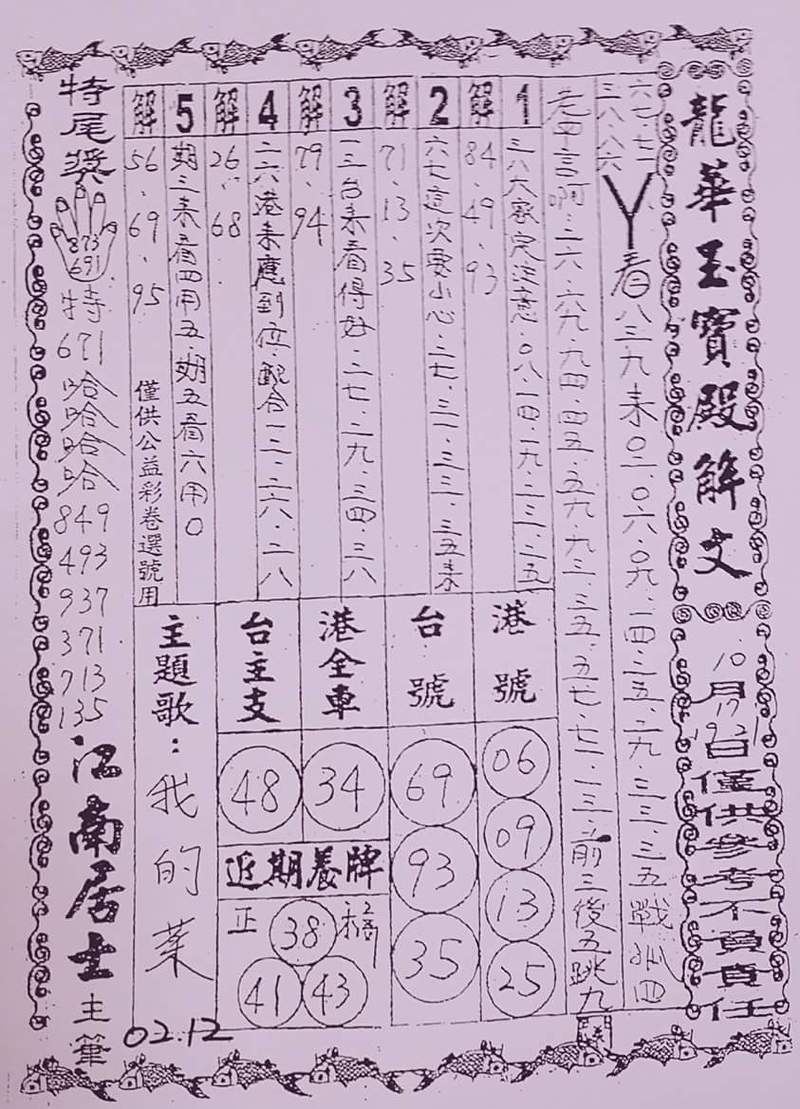 龍華玉寶殿解文
10月17日19.21
僅供參考不負責任
六七.七一
三八.八六
丫看八三九来0二.0六.0九.一四.二五.二九.三三.三五戰
老平言啊.二六.六九.九四.四五.五九.九三.三五.五七.七一.一三.前三後五跳九
1
三八六家定注意.0八.一四.一九.二三.二五
解
84.49.93
2
六七這次要小心.二七.三一.三三.三五来
解
71.13.35
3
一三台来看得好.二七.二九.三四.三八
解
79.94
4
二六港来應到位.配合一二.二六.二八
解
26.68
5
期三来看四用五期五看六用0
解
56.69.95
僅供公益彩卷選號用
港號
06
09
13
25
台號
69
93
35
港全車
34
台主支
48
近期養牌
正
38
41
43
主題歌:我的葉
02.12
特尾獎
873
691
特
671
哈哈哈哈
849
493
937
371
713
135
江南居士主筆